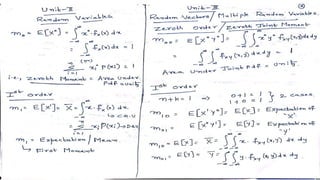 Unit-II
Random Variables
m₀ = E[X⁰] = ∫ x⁰ · fₓ(x) dx
= ∫ fₓ(x) dx = 1
Σ xᵢ⁰ P(xᵢ) = 1
i.e., Zeroth Moment = Area Under
Pdf unity
Ist Order
m₁ = E[X] = X̄ = ∫ x · fₓ(x) dx
→ C.R.V
m₁ = Expectation / Mean
↳ First Moment
Unit-III
Random Vectors / Multiple Random Variable
Zeroth Order / Zeroth Joint Moment
m₀₀ = E[X⁰Y⁰] = ∫∫ x⁰y⁰ fxy(x,y) dx dy
= ∫∫ fxy(x,y) dx dy = 1
Area Under Joint Pdf = Unity.
Ist Order
n+k = 1 ⇒ 0+1 = 1
1+0 = 1 } 2 cases.
m₁₀ = E[X¹Y⁰] = E[X] = Expectation of 'X'
m₀₁ = E[X⁰Y¹] = E[Y] = Expectation of 'Y'
m₁₀ = E[X] = X̄ = ∫∫ x · fxy(x,y) dx dy
m₀₁ = E[Y] = Ȳ = ∫∫ y · fxy(x,y) dx dy